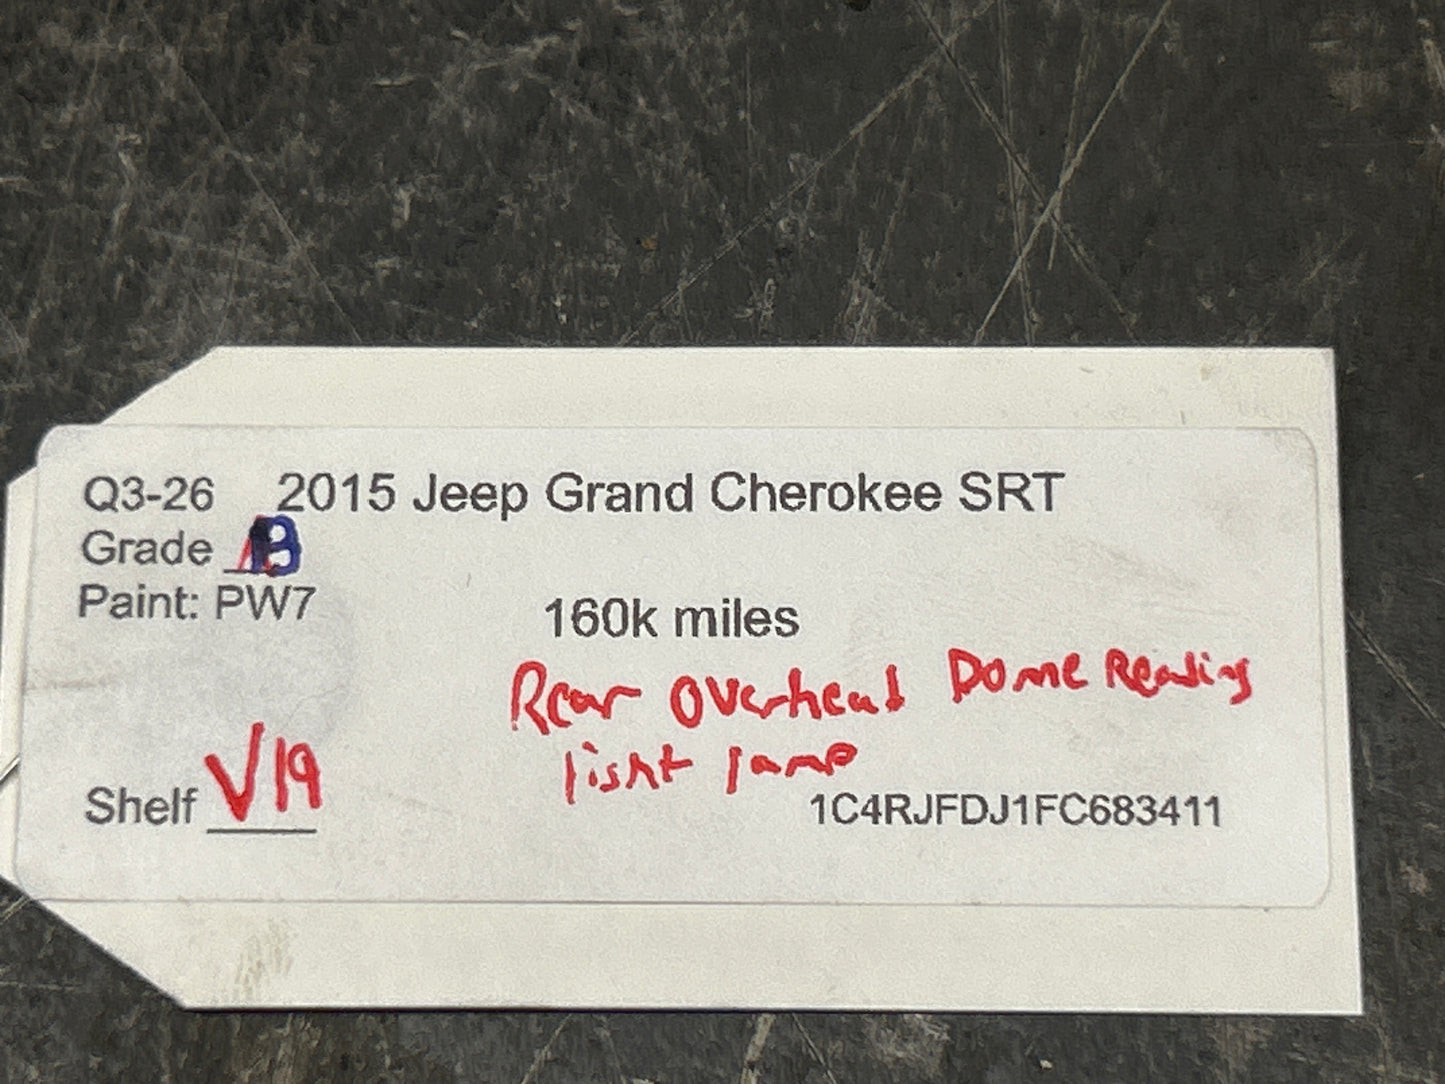 Q3-26 2015 Jeep Grand Cherokee SRT
Grade B
Paint: PW7
160k miles
Rear Overhead Dome Reading
light lamp
Shelf V19
1C4RJFDJ1FC683411